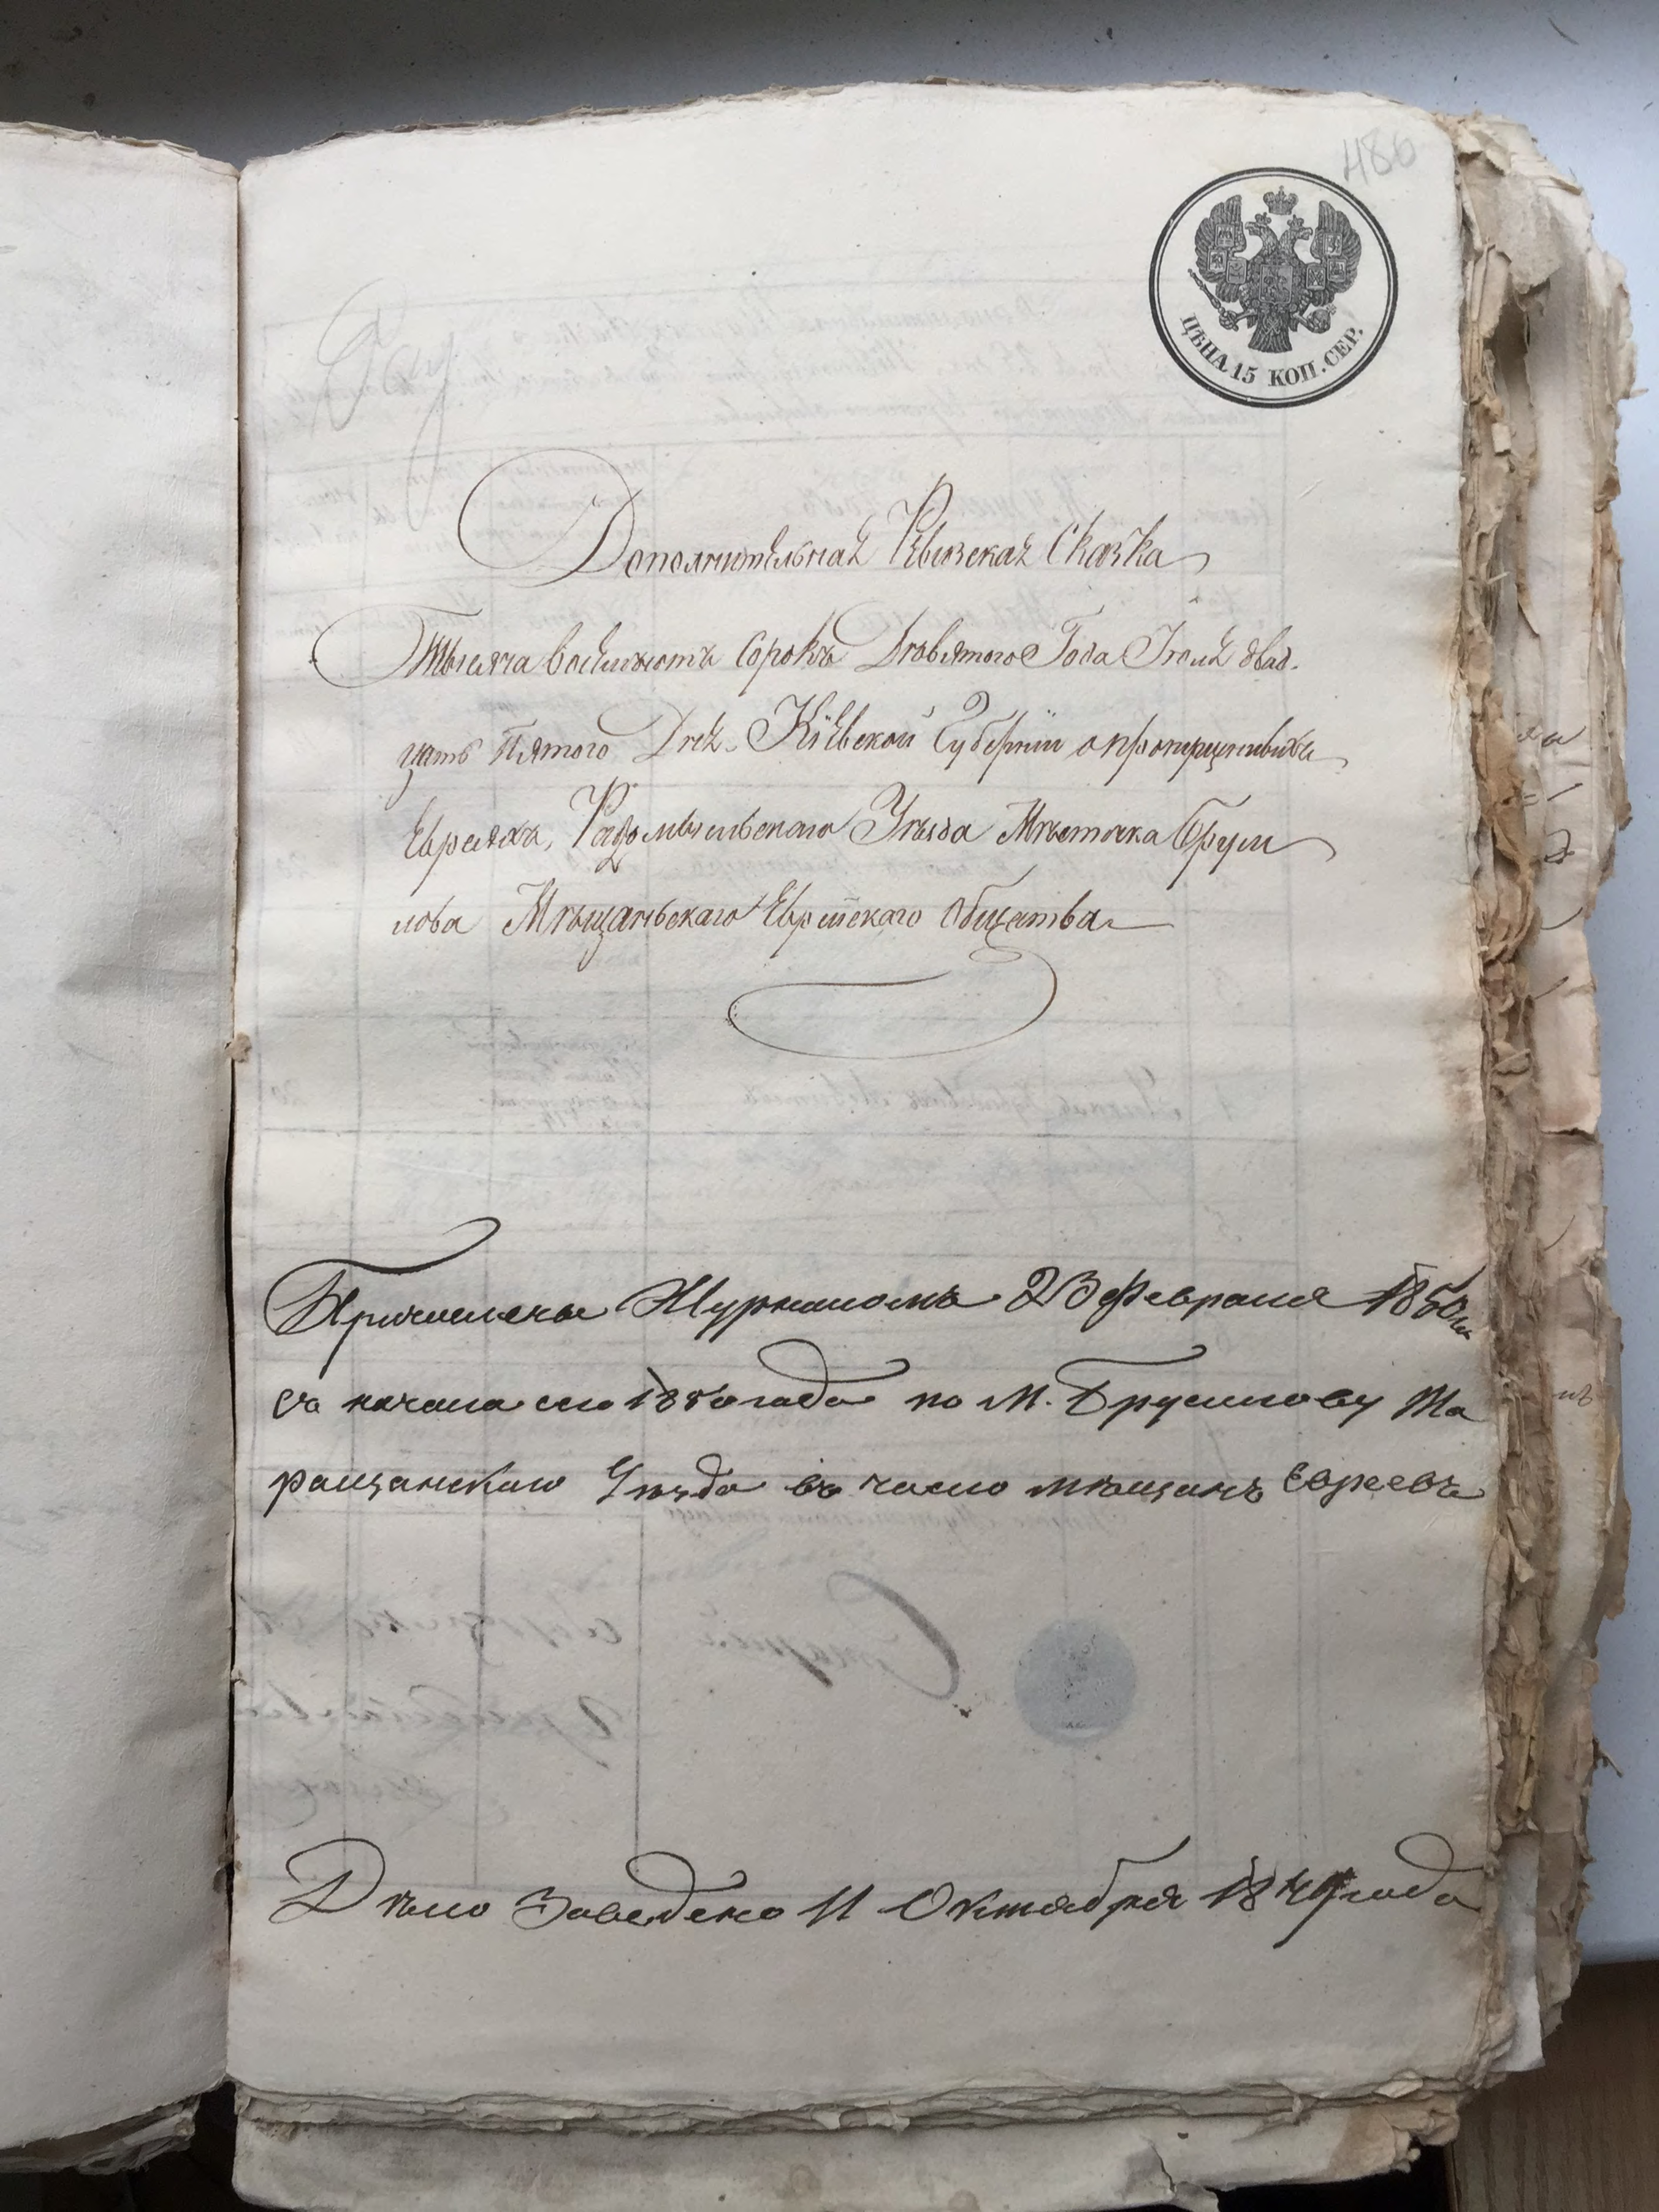 486
ЦѢНА 15 КОП. СЕР.
Дополнительная Ревизская Сказка
Тысяча восемьсотъ Сорокъ Девятого Года Іюля двад-
цать Пятого Дня Кіевской Губерніи о пропущенныхъ
Евреяхъ, Радомысльского Уѣзда Мѣстечка Бруси
лова Мѣщаньскаго Еврейскаго Общества
Причислены Журналомъ 23 Февраля 1850 г.
съ начала сего 1850 года по М. Брусилову
Уѣзда въ число мѣщанъ Евреевъ
Дѣло Заведено 11 Октября 1849 года